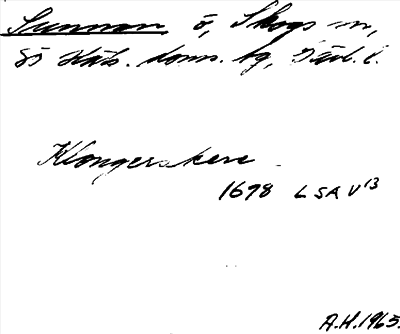 Sunnan ö, Skogs sn,
Sö Häls. doms. bg, Gävl. l.
Klongerskere
1698 LSA V 13
A.H. 1965.